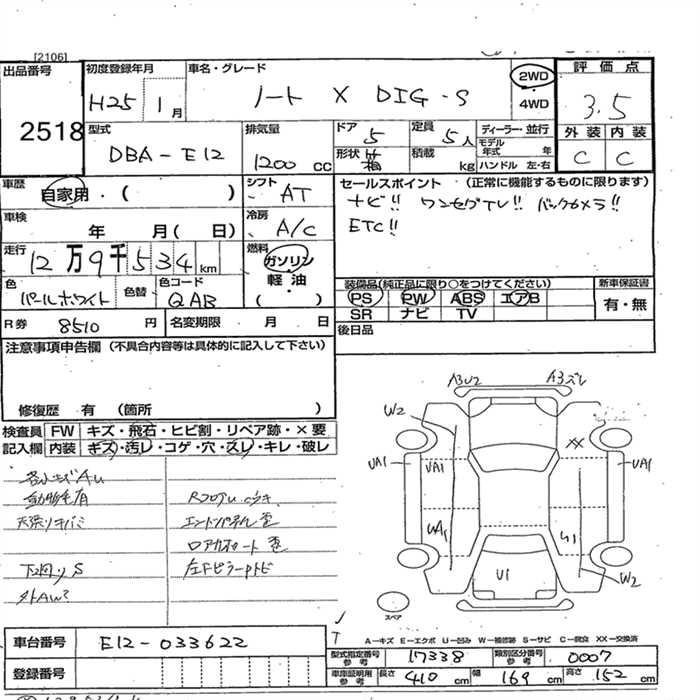 [2106]
出品番号
2518
初度登録年月
H25 1月
車名・グレード
ノート X DIG-S
2WD
4WD
評価点
3.5
外装 内装
C C
型式
DBA-E12
排気量
1200 cc
ドア 5
形状 箱
定員 5人
積載 kg
ディーラー・並行
モデル年式 年
ハンドル 左・右
車歴
自家用・( )
シフト
AT
車検
年 月( 日)
冷房
A/C
走行
12万9千534km
燃料
ガソリン
軽油
( )
色
パールホワイト
色替
色コード
QAB
R券 8510円
名変期限 月 日
セールスポイント (正常に機能するものに限ります)
ナビ!! ワンセグTV!! バックカメラ!!
ETC!!
装備品(純正品に限り○をつけてください)
PS PW ABS エアB
SR ナビ TV
新車保証書
有・無
後日品
注意事項申告欄 (不具合内容等は具体的に記入して下さい)
修復歴 有 (箇所 )
検査員
記入欄
FW キズ・飛石・ヒビ割・リペア跡・×要
内装 キズ・汚レ・コゲ・穴・スレ・キレ・破レ
動物毛有
下回りS
エンドパネル歪
ロアカボート歪
A3U2
A3ズレ
W2
XX
UA1
UA1
UA1
UA1
U1
U1
W2
スペア
A-キズ E-エクボ U-凹み W-補修跡 S-サビ C-腐食 XX-交換済
車台番号
E12-033622
登録番号
型式指定番号
参考
17338
類別区分番号
参考
0007
車庫証明用
参考
長さ 410 cm 幅 169 cm 高さ 152 cm